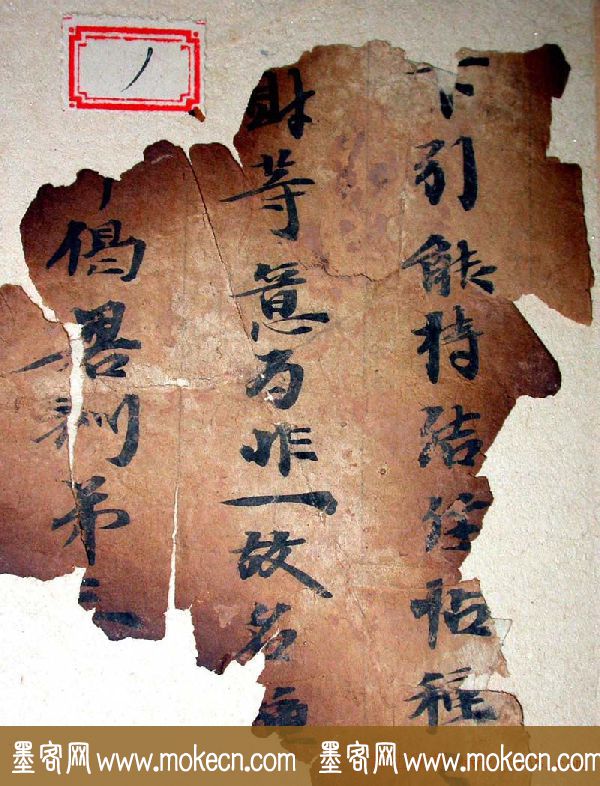 下引能持結經帖種
財等意為非一故名
偈略判弟三
墨客网 www.mokecn.com 墨客网 www.mokecn.com